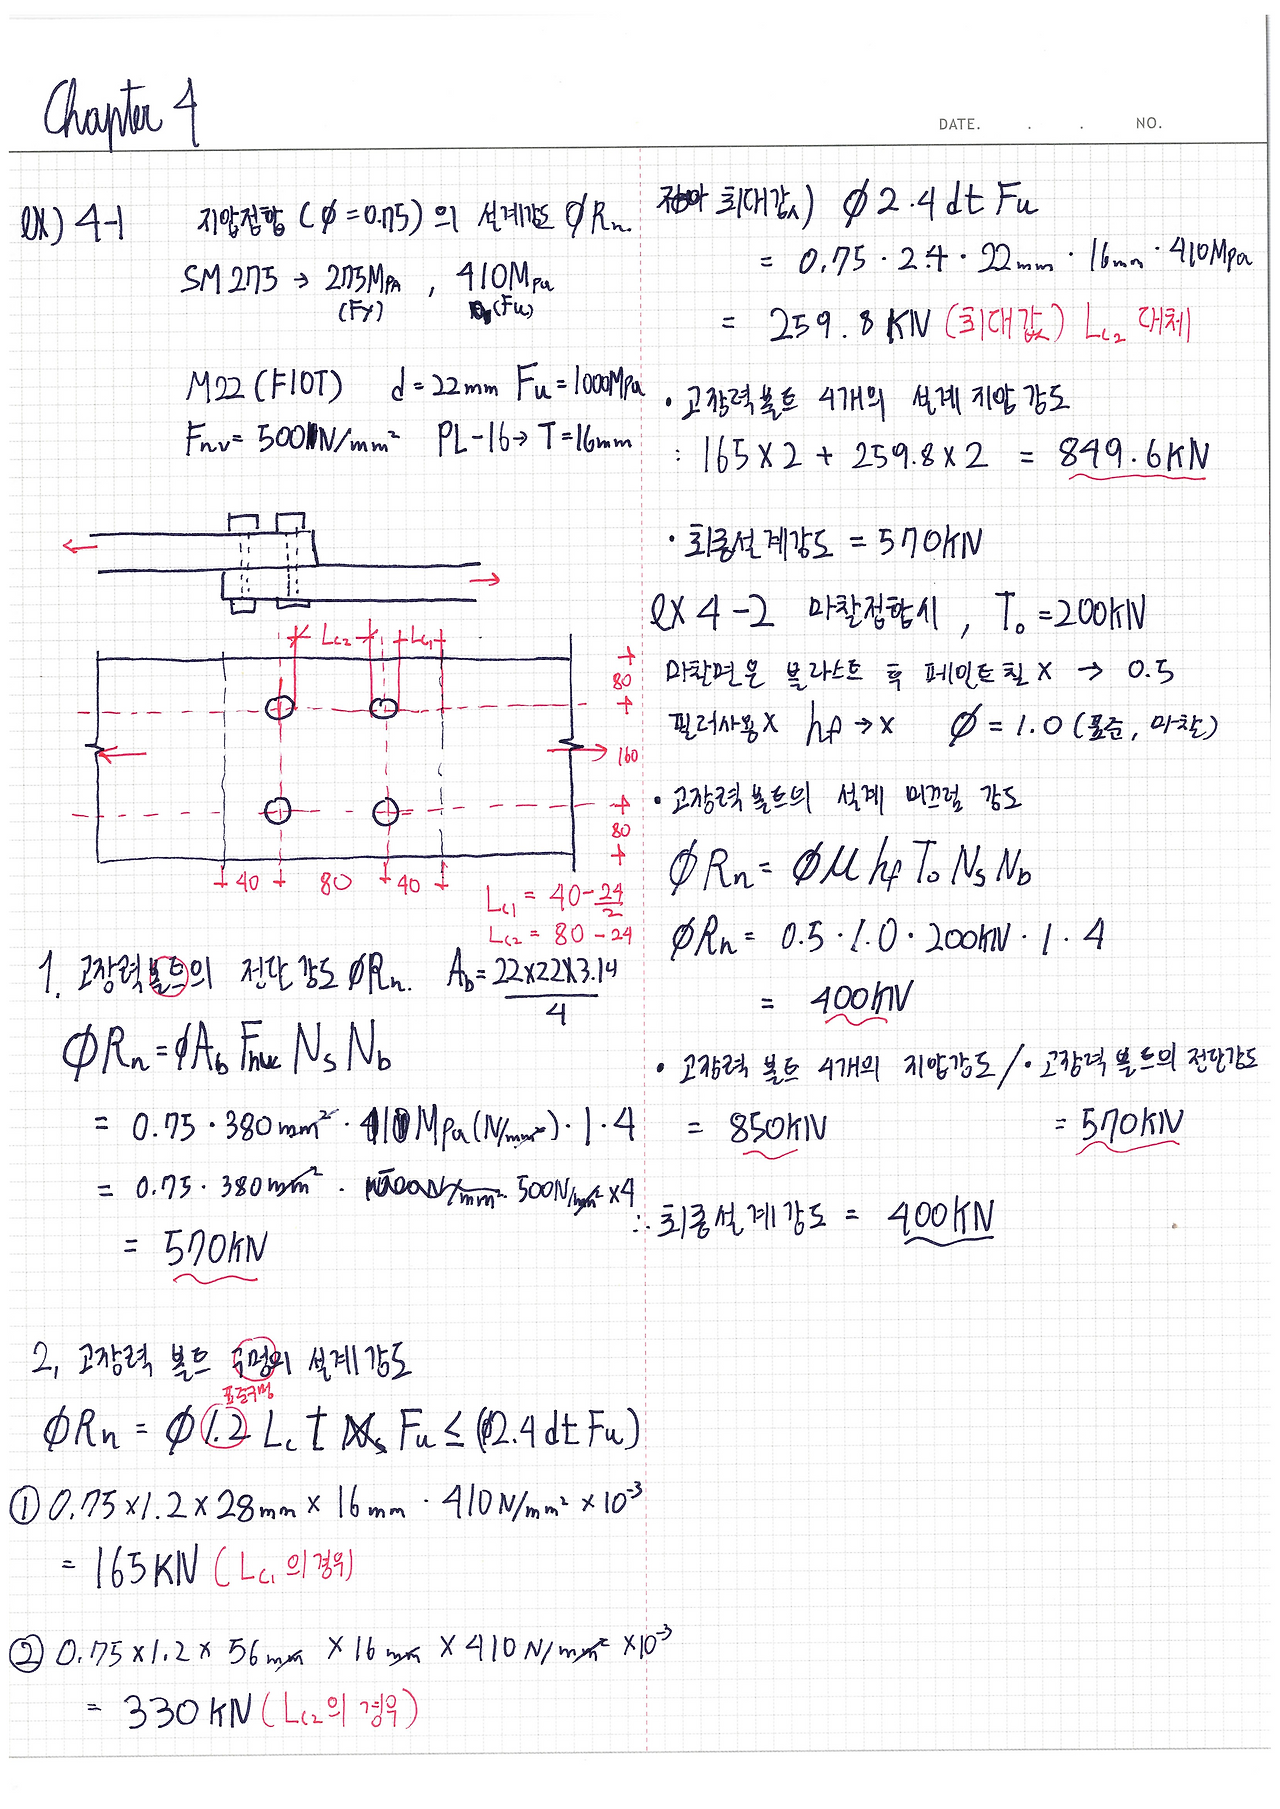 Chapter 4
DATE. . . NO.
ex) 4-1 지압접합 (ϕ=0.75)의 설계강도 ϕRn.
SM275 → 275MPa , 410MPa
(Fy) (Fu)
M22 (F10T) d=22mm Fu=1000MPa
Fnv= 500N/mm² PL-16→ T=16mm
Lc2 Lc1
80
160
80
40 80 40
Lc1 = 40-24/2
Lc2 = 80-24
1. 고장력볼트의 전단 강도 ϕRn. Ab= 22×22×3.14/4
ϕRn=ϕAb Fnv Ns Nb
= 0.75 · 380mm² · 410MPa(N/mm²) · 1 · 4
= 0.75 · 380mm² · 500N/mm² ×4
= 570KN
2, 고장력 볼트 구멍의 설계강도
표준구멍
ϕRn = ϕ 1.2 Lc t Fu ≤ (ϕ2.4dtFu)
① 0.75×1.2×28mm × 16mm · 410N/mm² ×10⁻³
= 165KN (Lc1의 경우)
② 0.75×1.2× 56mm ×16mm ×410N/mm² ×10⁻³
= 330KN (Lc2의 경우)
최대값) ϕ2.4dtFu
= 0.75 · 2.4 · 22mm · 16mm · 410MPa
= 259.8KN (최대값) Lc2 대체
· 고장력볼트 4개의 설계 지압강도
: 165×2 + 259.8×2 = 849.6KN
· 최종설계강도 = 570KN
ex 4-2 마찰접합시, To=200KN
마찰면은 블라스트 후 페인트칠 x → 0.5
필러사용x hf→x ϕ=1.0 (표준, 마찰)
· 고장력볼트의 설계 미끄럼 강도
ϕRn= ϕμhfToNsNb
ϕRn= 0.5 · 1.0 · 200KN · 1 · 4
= 400KN
· 고장력 볼트 4개의 지압강도 / · 고장력 볼트의 전단강도
= 850KN = 570KN
∴ 최종설계강도 = 400KN